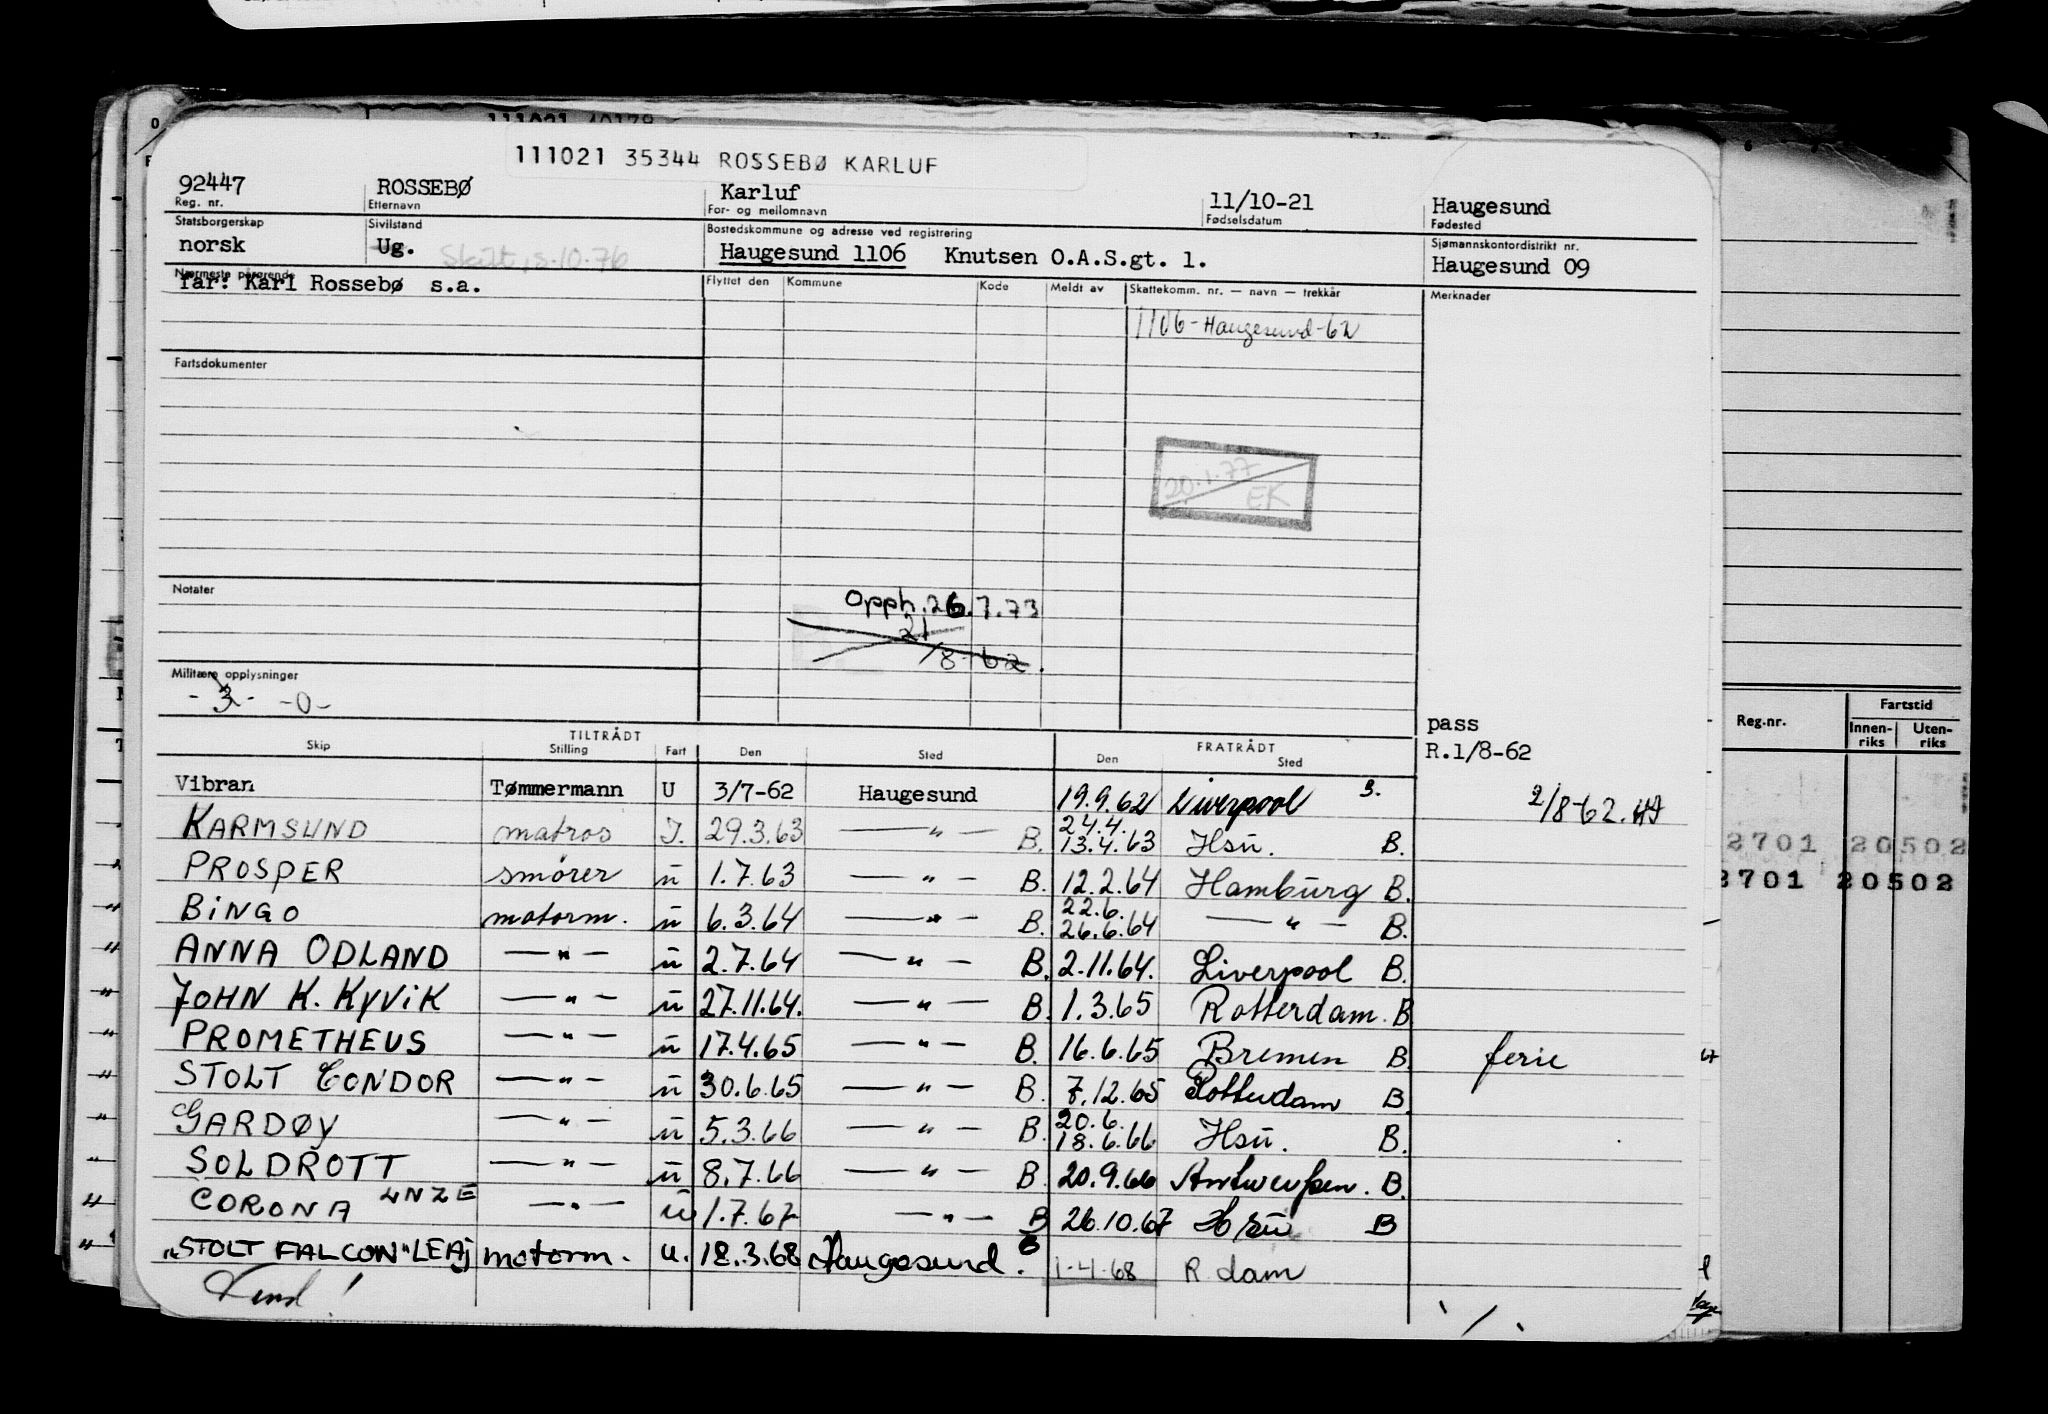 111021 35344 ROSSEBØ KARLUF
92447 ROSSEBØ Karluf 11/10-21 Haugesund
Reg. nr. Etternavn For- og mellomnavn Fødselsdatum Fødested
Statsborgerskap Sivilstand Bostedskommune og adresse ved registrering Sjømannskontordistrikt nr.
norsk Ug. Skilt, s.10.76 Haugesund 1106 Knutsen O.A.S.gt. 1. Haugesund 09
Nærmeste pårørende Flyttet den Kommune Kode Meldt av Skattekomm. nr. — navn — trekkår Merknader
far: Karl Rossebø s.a.
1106-Haugesund-62
Fartsdokumenter
20.1.77
EK
Notater
Opph. 26.7.73
21
/8-62.
Militære opplysninger
-3- -0-
pass
R.1/8-62
TILTRÅDT FRATRÅDT
Skip Stilling Fart Den Sted Den Sted
Vibran Tømmermann U 3/7-62 Haugesund 19.9.62 Liverpool B. 2/8-62.
KARMSUND matros I. 29.3.63 —"— B. 24.4. 13.4.63 Hsu. B.
PROSPER smører u 1.7.63 —"— B. 12.2.64 Hamburg B.
BINGO motorm. u 6.3.64 —"— B. 22.6. 26.6.64 —"— B.
ANNA ODLAND —"— u 2.7.64 —"— B. 2.11.64. Liverpool B.
JOHN K. KYVIK —"— u 27.11.64. —"— B. 1.3.65 Rotterdam. B
PROMETHEUS —"— u 17.4.65 —"— B. 16.6.65 Bremen B. ferie
STOLT CONDOR —"— u 30.6.65 —"— B. 7.12.65 Rotterdam B.
GARDØY —"— u 5.3.66 —"— B. 20.6. 18.6.66 Hsu. B.
SOLDROTT —"— u 8.7.66 —"— B. 20.9.66 Antwerpen. B.
CORONA LNZE —"— u 1.7.67 —"— B 26.10.67 Hsu B
"STOLT FALCON" LEAJ motorm. u. 18.3.68 Haugesund. B 1-4-68 R.dam
Vend!
Reg.nr. Fartstid
Innen-riks Uten-riks
2701 20502
3701 20502